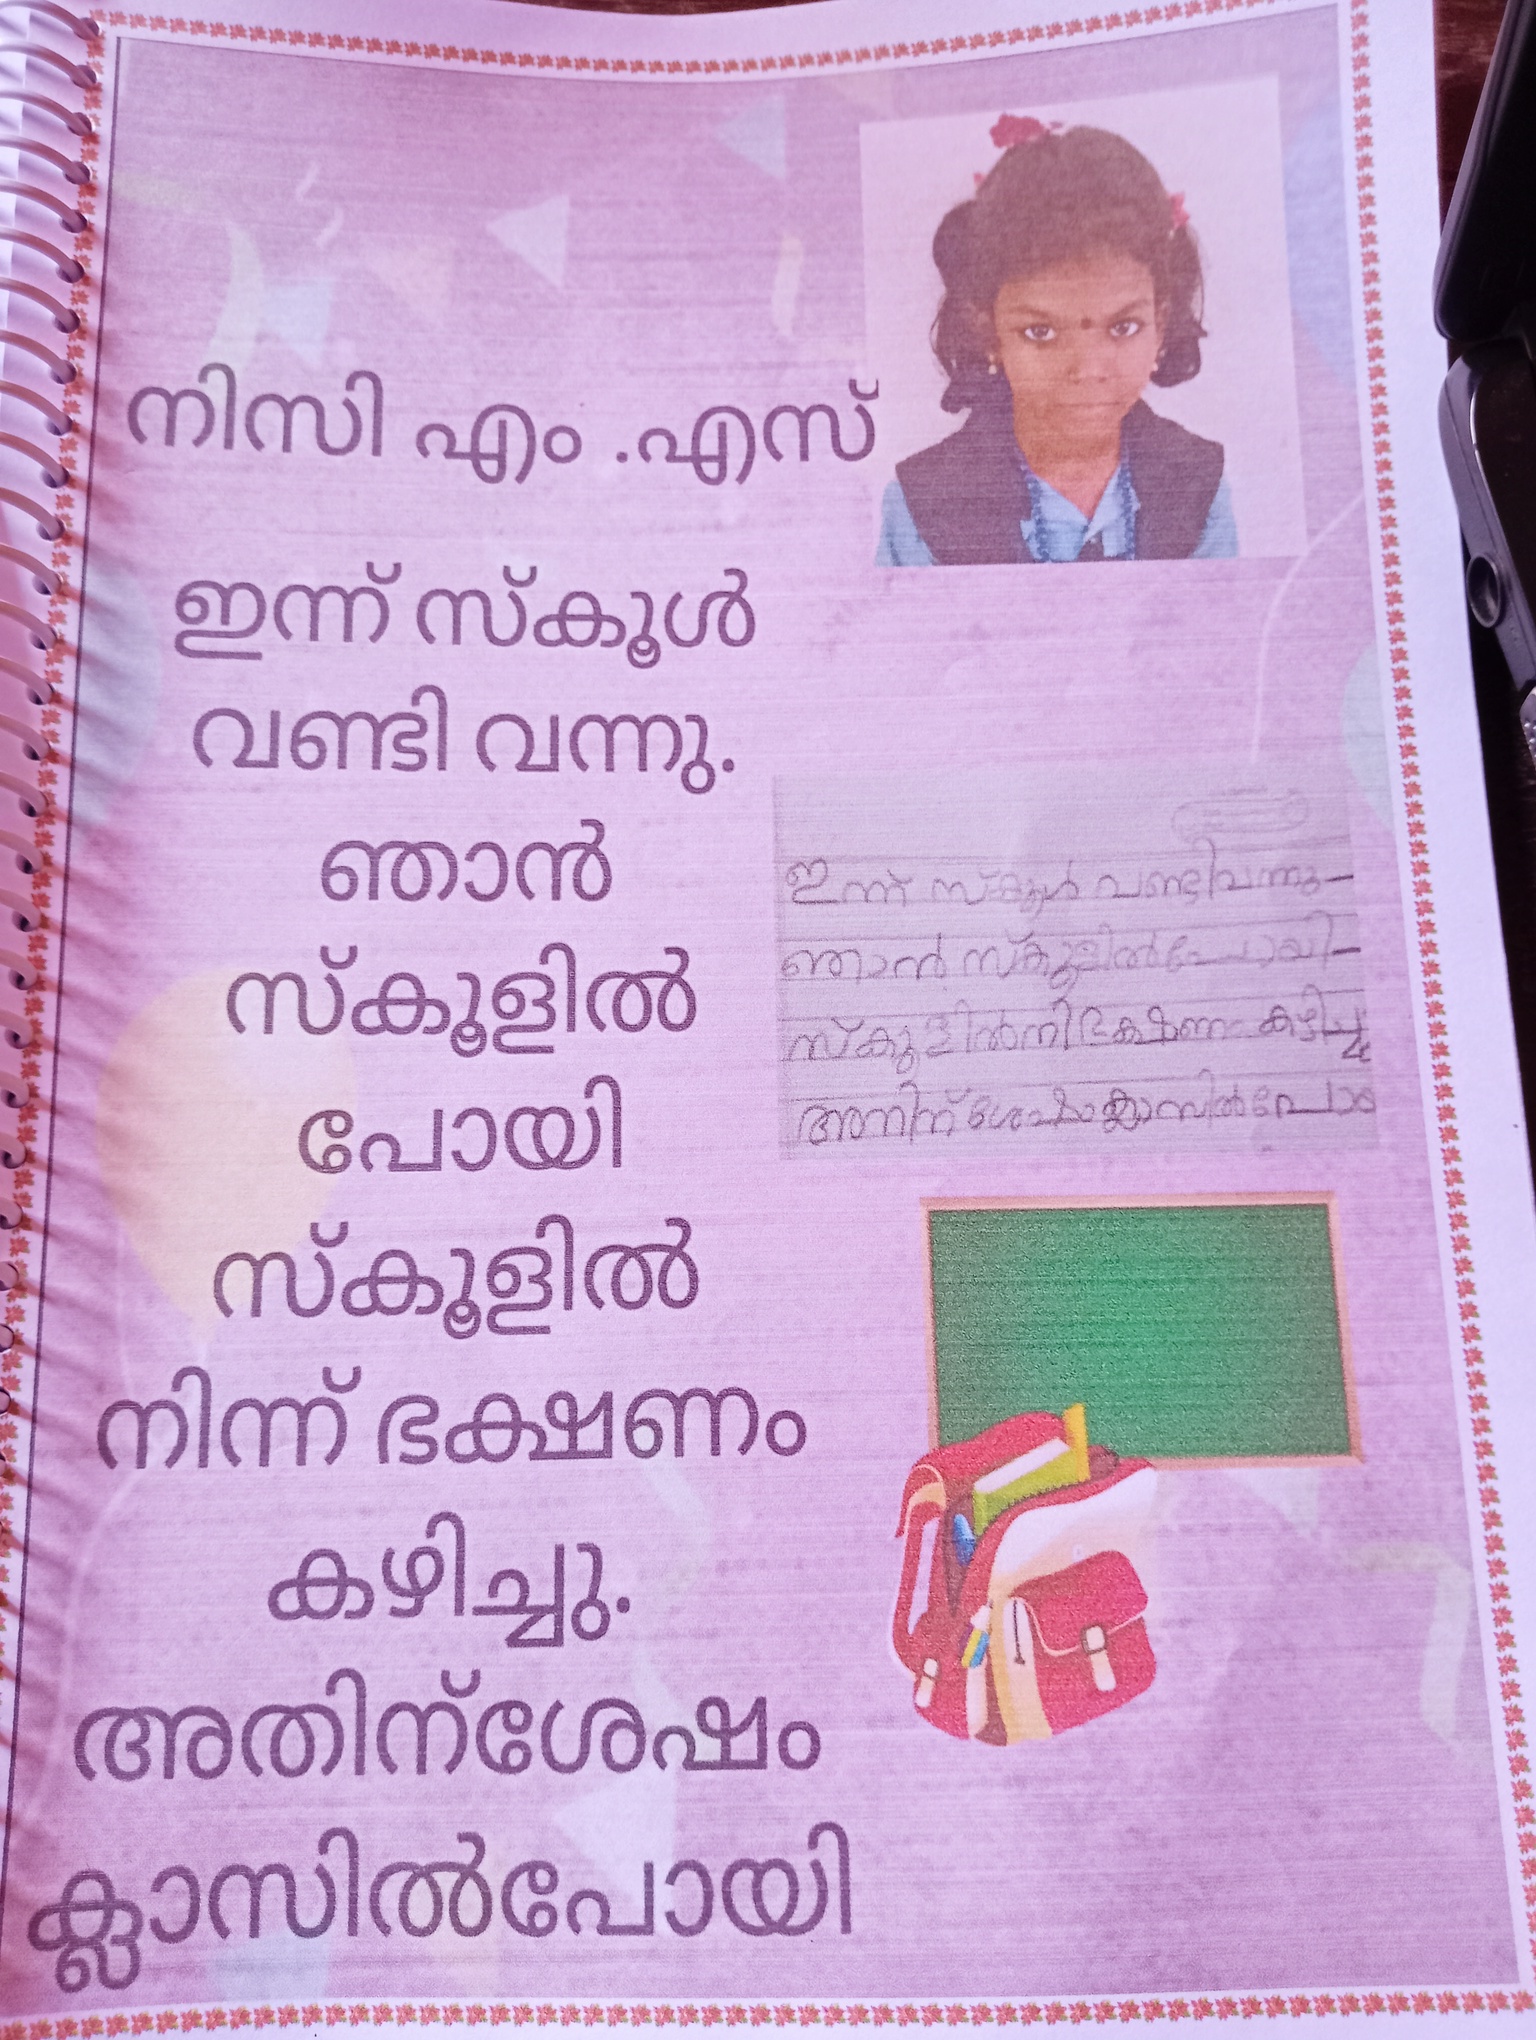 നിസി എം .എസ്
ഇന്ന് സ്കൂൾ
വണ്ടി വന്നു.
ഞാൻ
സ്കൂളിൽ
പോയി
സ്കൂളിൽ
നിന്ന് ഭക്ഷണം
കഴിച്ചു.
അതിന്ശേഷം
ക്ലാസിൽപോയി
ഇന്ന് സ്കൂൾ വണ്ടിവന്നു
ഞാൻ സ്കൂളിൽപോയി
സ്കൂളിൽനി ഭക്ഷണം കഴിച്ചു
അനിന് ശേഷം ക്ലാസിൽ പോ